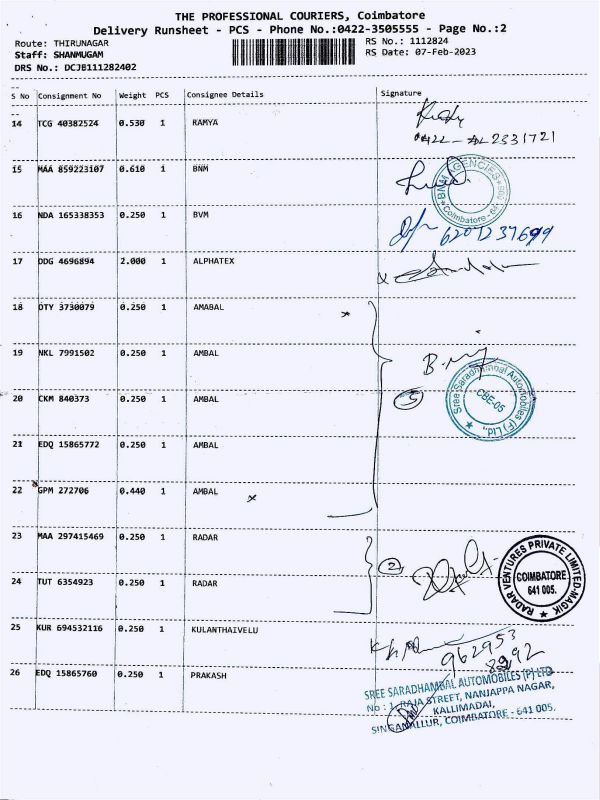 THE PROFESSIONAL COURIERS, Coimbatore
Delivery Runsheet - PCS - Phone No.:0422-3505555 - Page No.:2
Route: THIRUNAGAR
Staff: SHANMUGAM
DRS No.: DCJB111282402
RS No.: 1112824
RS Date: 07-Feb-2023
S No Consignment No Weight PCS Consignee Details Signature
14 TCG 40382524 0.530 1 RAMYA
15 MAA 859223107 0.610 1 BNM
BNM AGENCIES
Coimbatore
16 NDA 165338353 0.250 1 BVM
17 DDG 4696894 2.000 1 ALPHATEX
18 DTY 3730079 0.250 1 AMABAL
19 NKL 7991502 0.250 1 AMBAL
20 CKM 840373 0.250 1 AMBAL 5
Sree Saradhambal Automobiles (P) Ltd.,
CBE-05
21 EDQ 15865772 0.250 1 AMBAL
22 GPM 272706 0.440 1 AMBAL
23 MAA 297415469 0.250 1 RADAR 2
RADAR VENTURES PRIVATE LIMITED-MAGIK
COIMBATORE
641 005.
24 TUT 6354923 0.250 1 RADAR
25 KUR 694532116 0.250 1 KULANTHAIVELU
962953
26 EDQ 15865760 0.250 1 PRAKASH
SREE SARADHAMBAL AUTOMOBILES (P) LTD
No : 1, RAJA STREET, NANJAPPA NAGAR,
KALLIMADAI,
SINGANALLUR, COIMBATORE - 641 005.